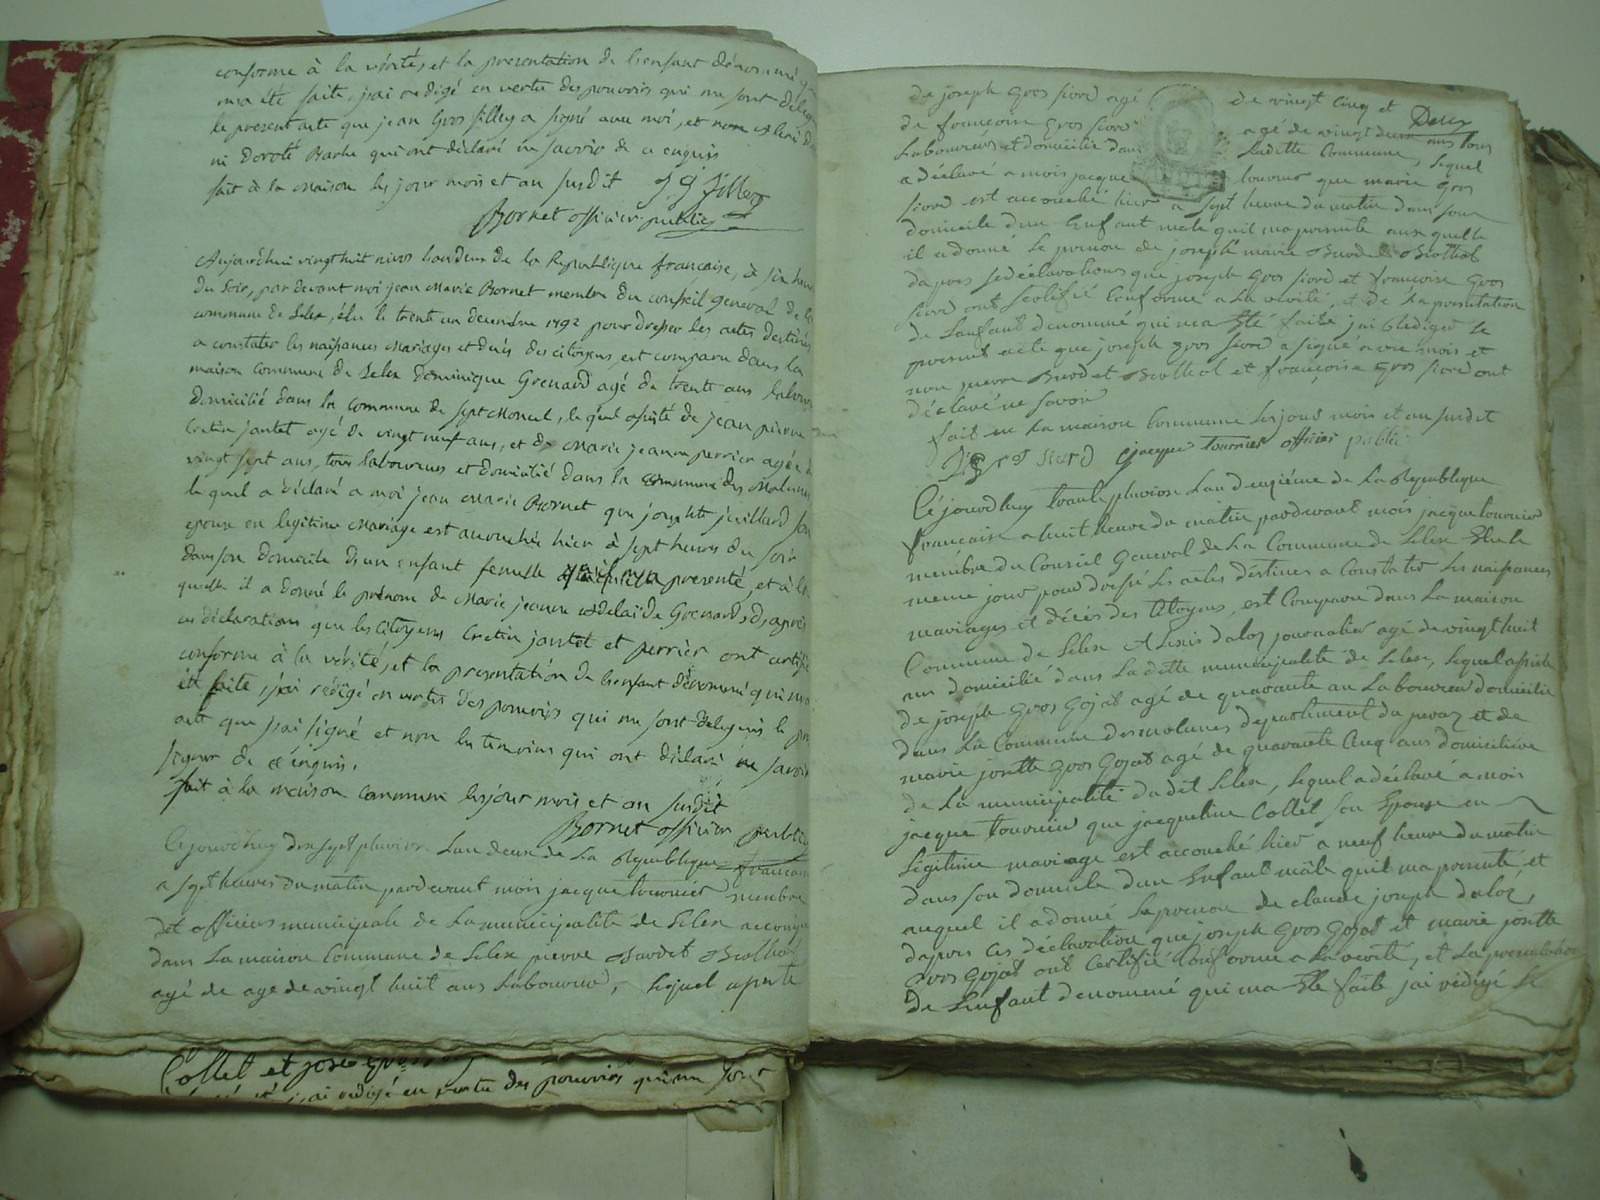 conforme à la vérité, et la presentation de lenfant dénommé
ma été faite, j'ai redigé en vertu des pouvoirs qui me sont délég
le present acte que jean Gros fillex a signé avec moi, et non
ni Doroté Barbe qui ont déclaré ne savoir de ce enquis
fait à la maison les jour mois et an susdit J G fillex
Bornet officier public
Aujourdhui vingt huit nivos landeux de la Republique francaise, à six heures
du soir, par devant moi jean Marie Bornet membre du conseil general de la
commune de Lelex, élu le trente un decembre 1792 pour dresser les actes destinés
a constater les naissances mariages et deces des citoyens, est comparu dans la
maison commune de Lelex Dominique Grenard agé de trente ans labour
domicilié dans la commune de sept Moncel, le quel assisté de jean pierre
Cretin jantet agé de vingt neuf ans, et de Marie jeanne perrier agée de
vingt sept ans, tous laboureurs et domicilié dans la commune des Molunes
le quel a déclaré a moi jean Marie Bornet que josephte juillard son
epouse en legitime mariage est accouchée hier à sept heures du soir
dans son domicile d'un enfant femelle presenté, et à la
quelle il a donné le prénom de Marie jeanne adelaïde Grenard, d'après
ces déclarations que les citoyens Cretin jantet et perrier ont certifié
conforme à la vérité, et la presentation de lenfant dénommé qui ma
été faite, j'ai rédigé en vertu des pouvoirs qui me sont délégués le pré
acte que j'ai signé et non les temoins qui ont déclaré ne savoir
signer de ce enquis.
fait à la maison commune les jour mois et an susdit
Bornet officier public
Cejourdhuy dix sept pluviose Lan deux de La Republique francaise
a sept heures du matin pardevant mois jacque tournier membre
det officiers municipale de La municipalité de Lelex
dans La maison Commune de Lelex pierre
agé de age de vingt huit ans Laboureur, Lequel assisté
de joseph gros siord agé de vingt Cinq et Deux
de francoise gros siord agé de vingt deux ans tous
Laboureurs et domicilie dans Laditte Commune, Lequel
a déclaré a mois jacque tournier que marie gros
siord est accouché hier a sept heure du matin dans son
domicile dun Enfant male quil ma presenté auxquelle
il a donné Le prenom de joseph marie
dapres ses déclarations que joseph gros siord et francoise gros
siord ont Certifié Conforme a La verité, et de La presentation
de Lanfant denommé qui ma Eté faite j'ai rediger le
present acte que joseph gros siord a signé avec mois et
non pierre et françoise gros siord ont
déclaré ne savoir
fait en La maison Commune Les jour mois et an susdit
J gros siord jacque tournier officier public
Cejourdhuy trante pluviose Lan deuxiéme de La Republique
francaise a huit heure du matin pardevant mois jacque tournier
membre du Conseil General de La Commune de Lelex Elu le
meme jour pour dressé Les actes déstines a Constater Les naissances
mariages et décés des Citoyens, est Comparu dans La maison
Commune de Lelex Alexis dalos journalier agé de vingt huit
ans domicilié dans La ditte municipalité de Lelex, Lequel assisté
de joseph gros gojat agé de quarante an Laboureur domicilié
dans La Commune des molunes departement du juraz et de
marie josette gros gojat agé de quarante Cinq ans domiciliée
de La municipalité du dit Lelex, Lequel a déclaré a mois
jacque tournier que jacqueline Collet Son Epouse en
Légitime mariage est accouché hier a neuf heure du matin
dans son domicile dun Enfant mâle quil ma presenté et
auquel il adonné Le prenom de claude joseph dalos,
dapres ces déclaration que joseph gros gojat et marie josette
gros gojat ont Certifié Conforme a La verité, et La presentation
de Lenfant denommé qui ma Eté faite j'ai rédigé le
Collet et
j'ai redigé en vertu des pouvoirs qui me sont